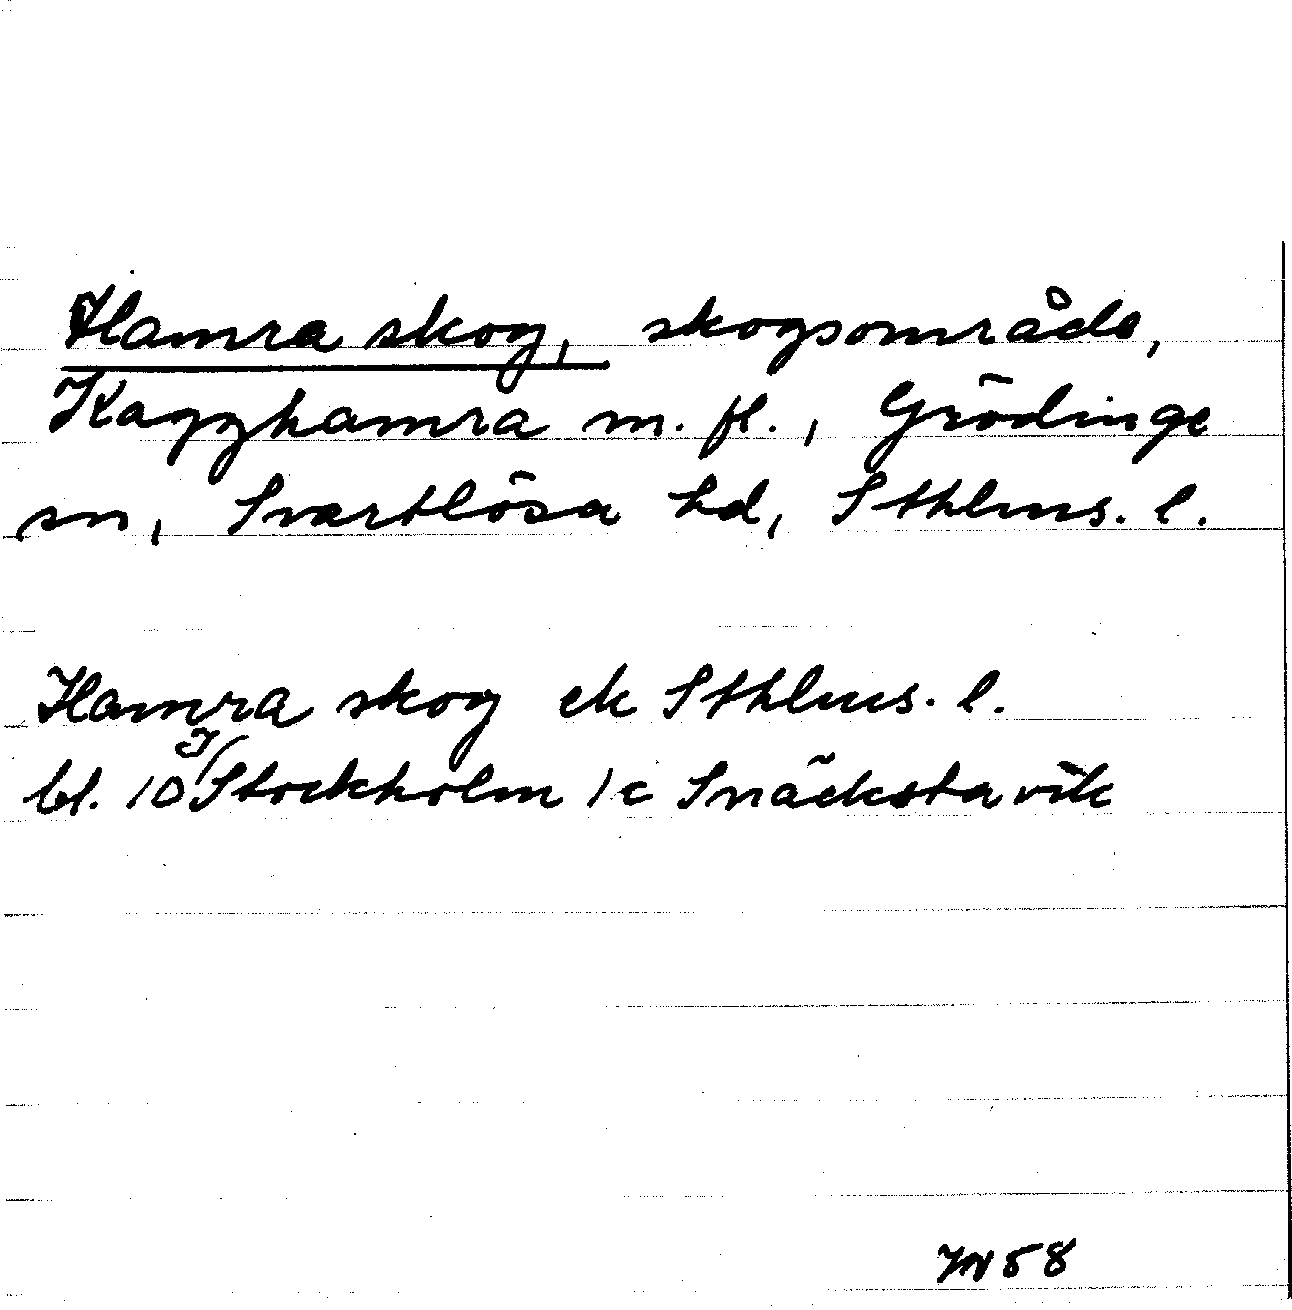 Hamra skog, skogsområde,
Kagghamra m. fl., Grödinge
sn, Svartlösa hd, Sthlms. l.
Hamra skog ek Sthlms. l.
bl. 10 J/ Stockholm 1c Snäckstavik
58